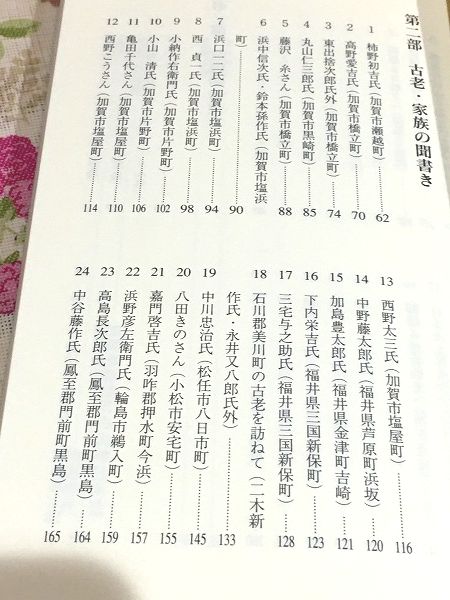 第二部　古老・家族の聞書き
1　柿野初吉氏（加賀市瀬越町）……62
2　高野愛吉氏（加賀市橋立町）……70
3　東出捨次郎氏外（加賀市橋立町）……74
4　丸山仁三郎氏（加賀市黒崎町）……85
5　藤沢　糸さん（加賀市橋立町）……88
6　浜中信次氏・鈴木孫作氏（加賀市塩浜
町）……90
7　浜口一二氏（加賀市塩浜町）……94
8　西　貞一氏（加賀市塩浜町）……98
9　小納作右衛門氏（加賀市片野町）……102
10　小山　清氏（加賀市片野町）……106
11　亀田千代さん（加賀市塩屋町）……110
12　西野こうさん（加賀市塩屋町）……114
13　西野太三氏（加賀市塩屋町）……116
14　中野藤太郎氏（福井県芦原町浜坂）……120
15　加島豊太郎氏（福井県金津町吉崎）……121
16　下内栄吉氏（福井県三国新保町）……123
17　三宅与之助氏（福井県三国新保町）……128
18　石川郡美川町の古老を訪ねて（二木新
作氏・永井又八郎氏外）……133
19　中川忠治氏（松任市八日市町）……145
20　八田きのさん（小松市安宅町）……155
21　嘉門啓吉氏（羽咋郡押水町今浜）……157
22　浜野彦左衛門氏（輪島市鵜入町）……159
23　高島長次郎氏（鳳至郡門前町黒島）……164
24　中谷藤作氏（鳳至郡門前町黒島）……165